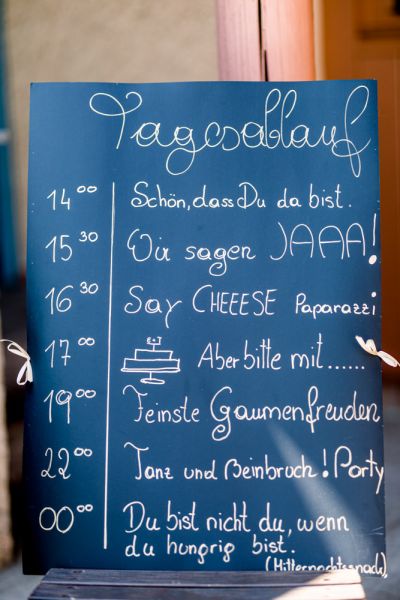 Tagesablauf
14 00 Schön, dass Du da bist.
15 30 Wir sagen JAAA!
16 30 Say CHEEESE Paparazzi
17 00 E+J Aber bitte mit......
19 00 Feinste Gaumenfreuden
22 00 Tanz und Beinbruch! Party
00 00 Du bist nicht du, wenn
du hungrig bist.
(Mitternachtssnack)